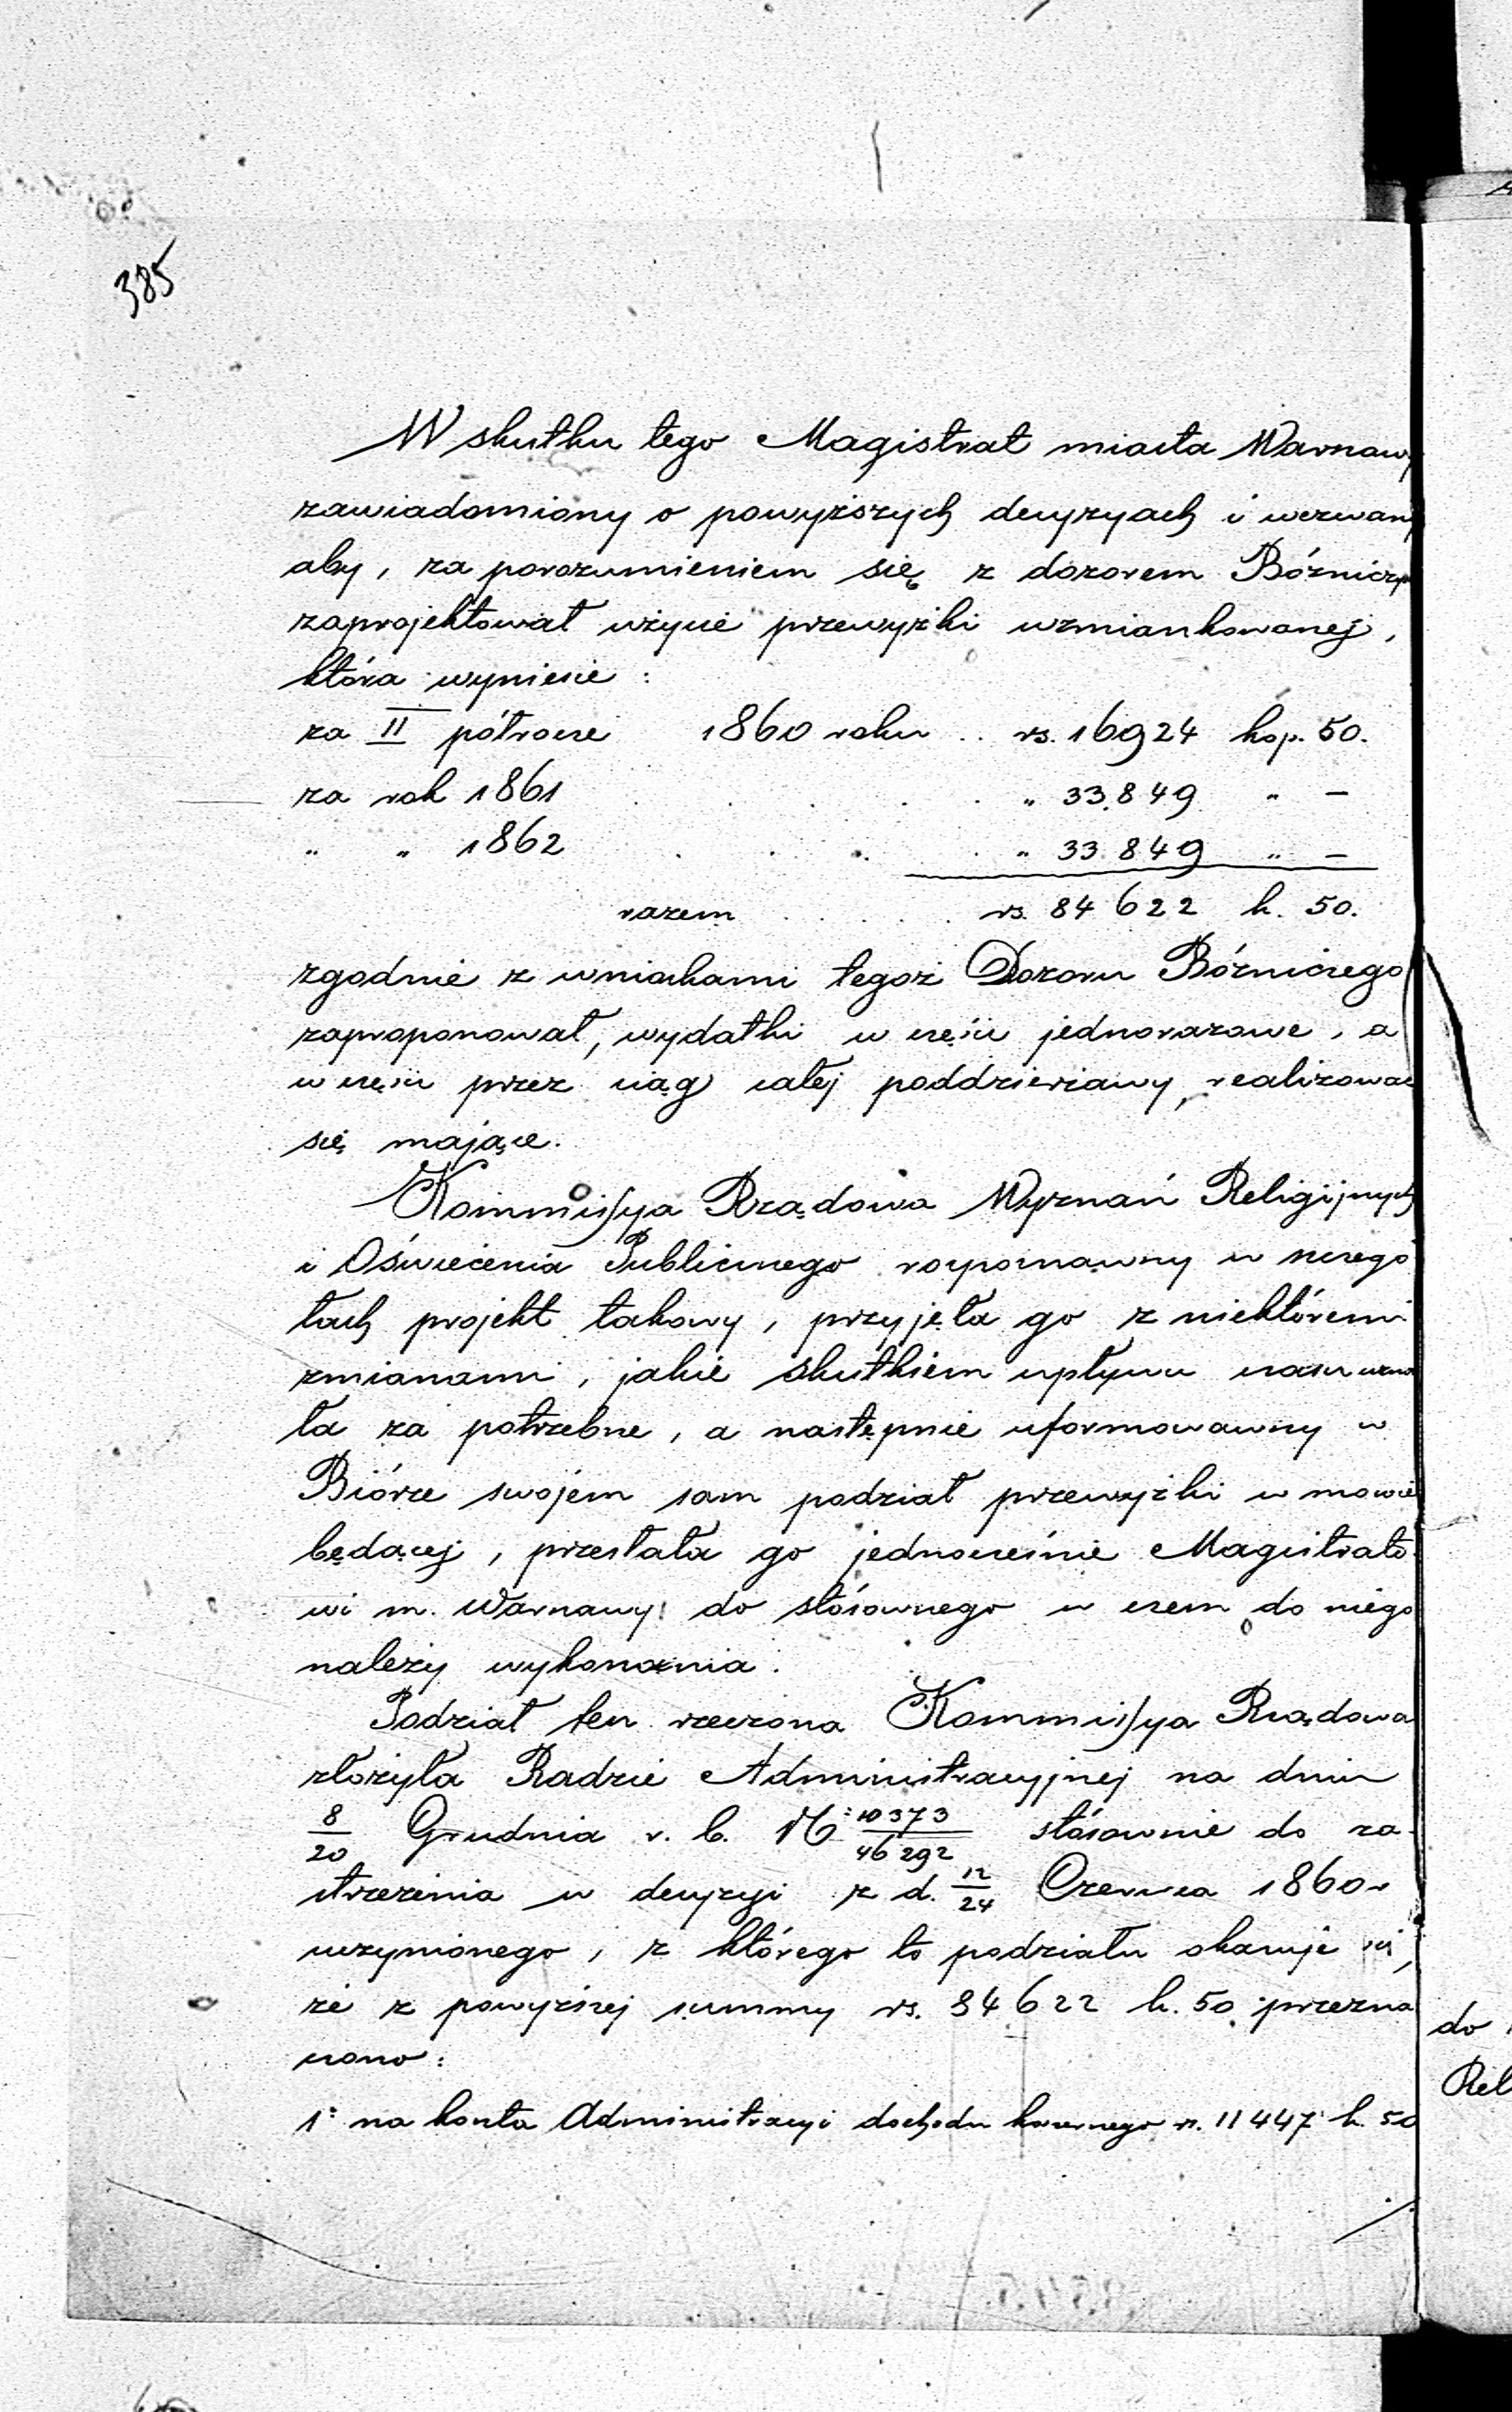 385
W skutku tego Magistrat miasta Warszawy
zawiadomiony o powyższych decyzyach i wezwany
aby, za porozumieniem się z dozorem Bóżniczym
zaprojektował użycie przewyżki wzmiankowanej,
która wyniesie:
za II półrocze 1860 roku .. rs. 16924 kop. 50.
za rok 1861 . . . . . „ 33.849 „ –
„ „ 1862 . . . . . „ 33.849 „ –
razem . . . . . rs. 84622 k. 50.
zgodnie z wnioskami tegoż Dozoru Bóżniczego
zaproponował, wydatki w części jednorazowe, a
w części przez ciąg całej poddzierżawy, realizować
się mające.
Kommissya Rządowa Wyznań Religijnych
i Oświecenia Publicznego rozpoznawszy w szczegó
łach projekt takowy, przyjęła go z niektóremi
zmianami, jakie skutkiem upływu czasu uzna
ła za potrzebne, a następnie uformowawszy w
Biórze swojem sam podział przewyżki w mowie
będącej, przesłała go jednocześnie Magistrato
wi m. Warszawy do stósownego w czem do niego
należy wykonania.
Podział ten rzeczona Kommissya Rządowa
złożyła Radzie Administracyjnej na dniu
8/20 Grudnia r. b. № 10373/46292 stósownie do za
strzeżenia w decyzyi z d. 12/24 Czerwca 1860 r
uczynionego, z którego to podziału okazuje się,
że z powyższej summy rs. 84622 k. 50 przezna
czono:
1° na konta Administracyi dochodu koszernego rs. 11447 k. 50
do
Rel